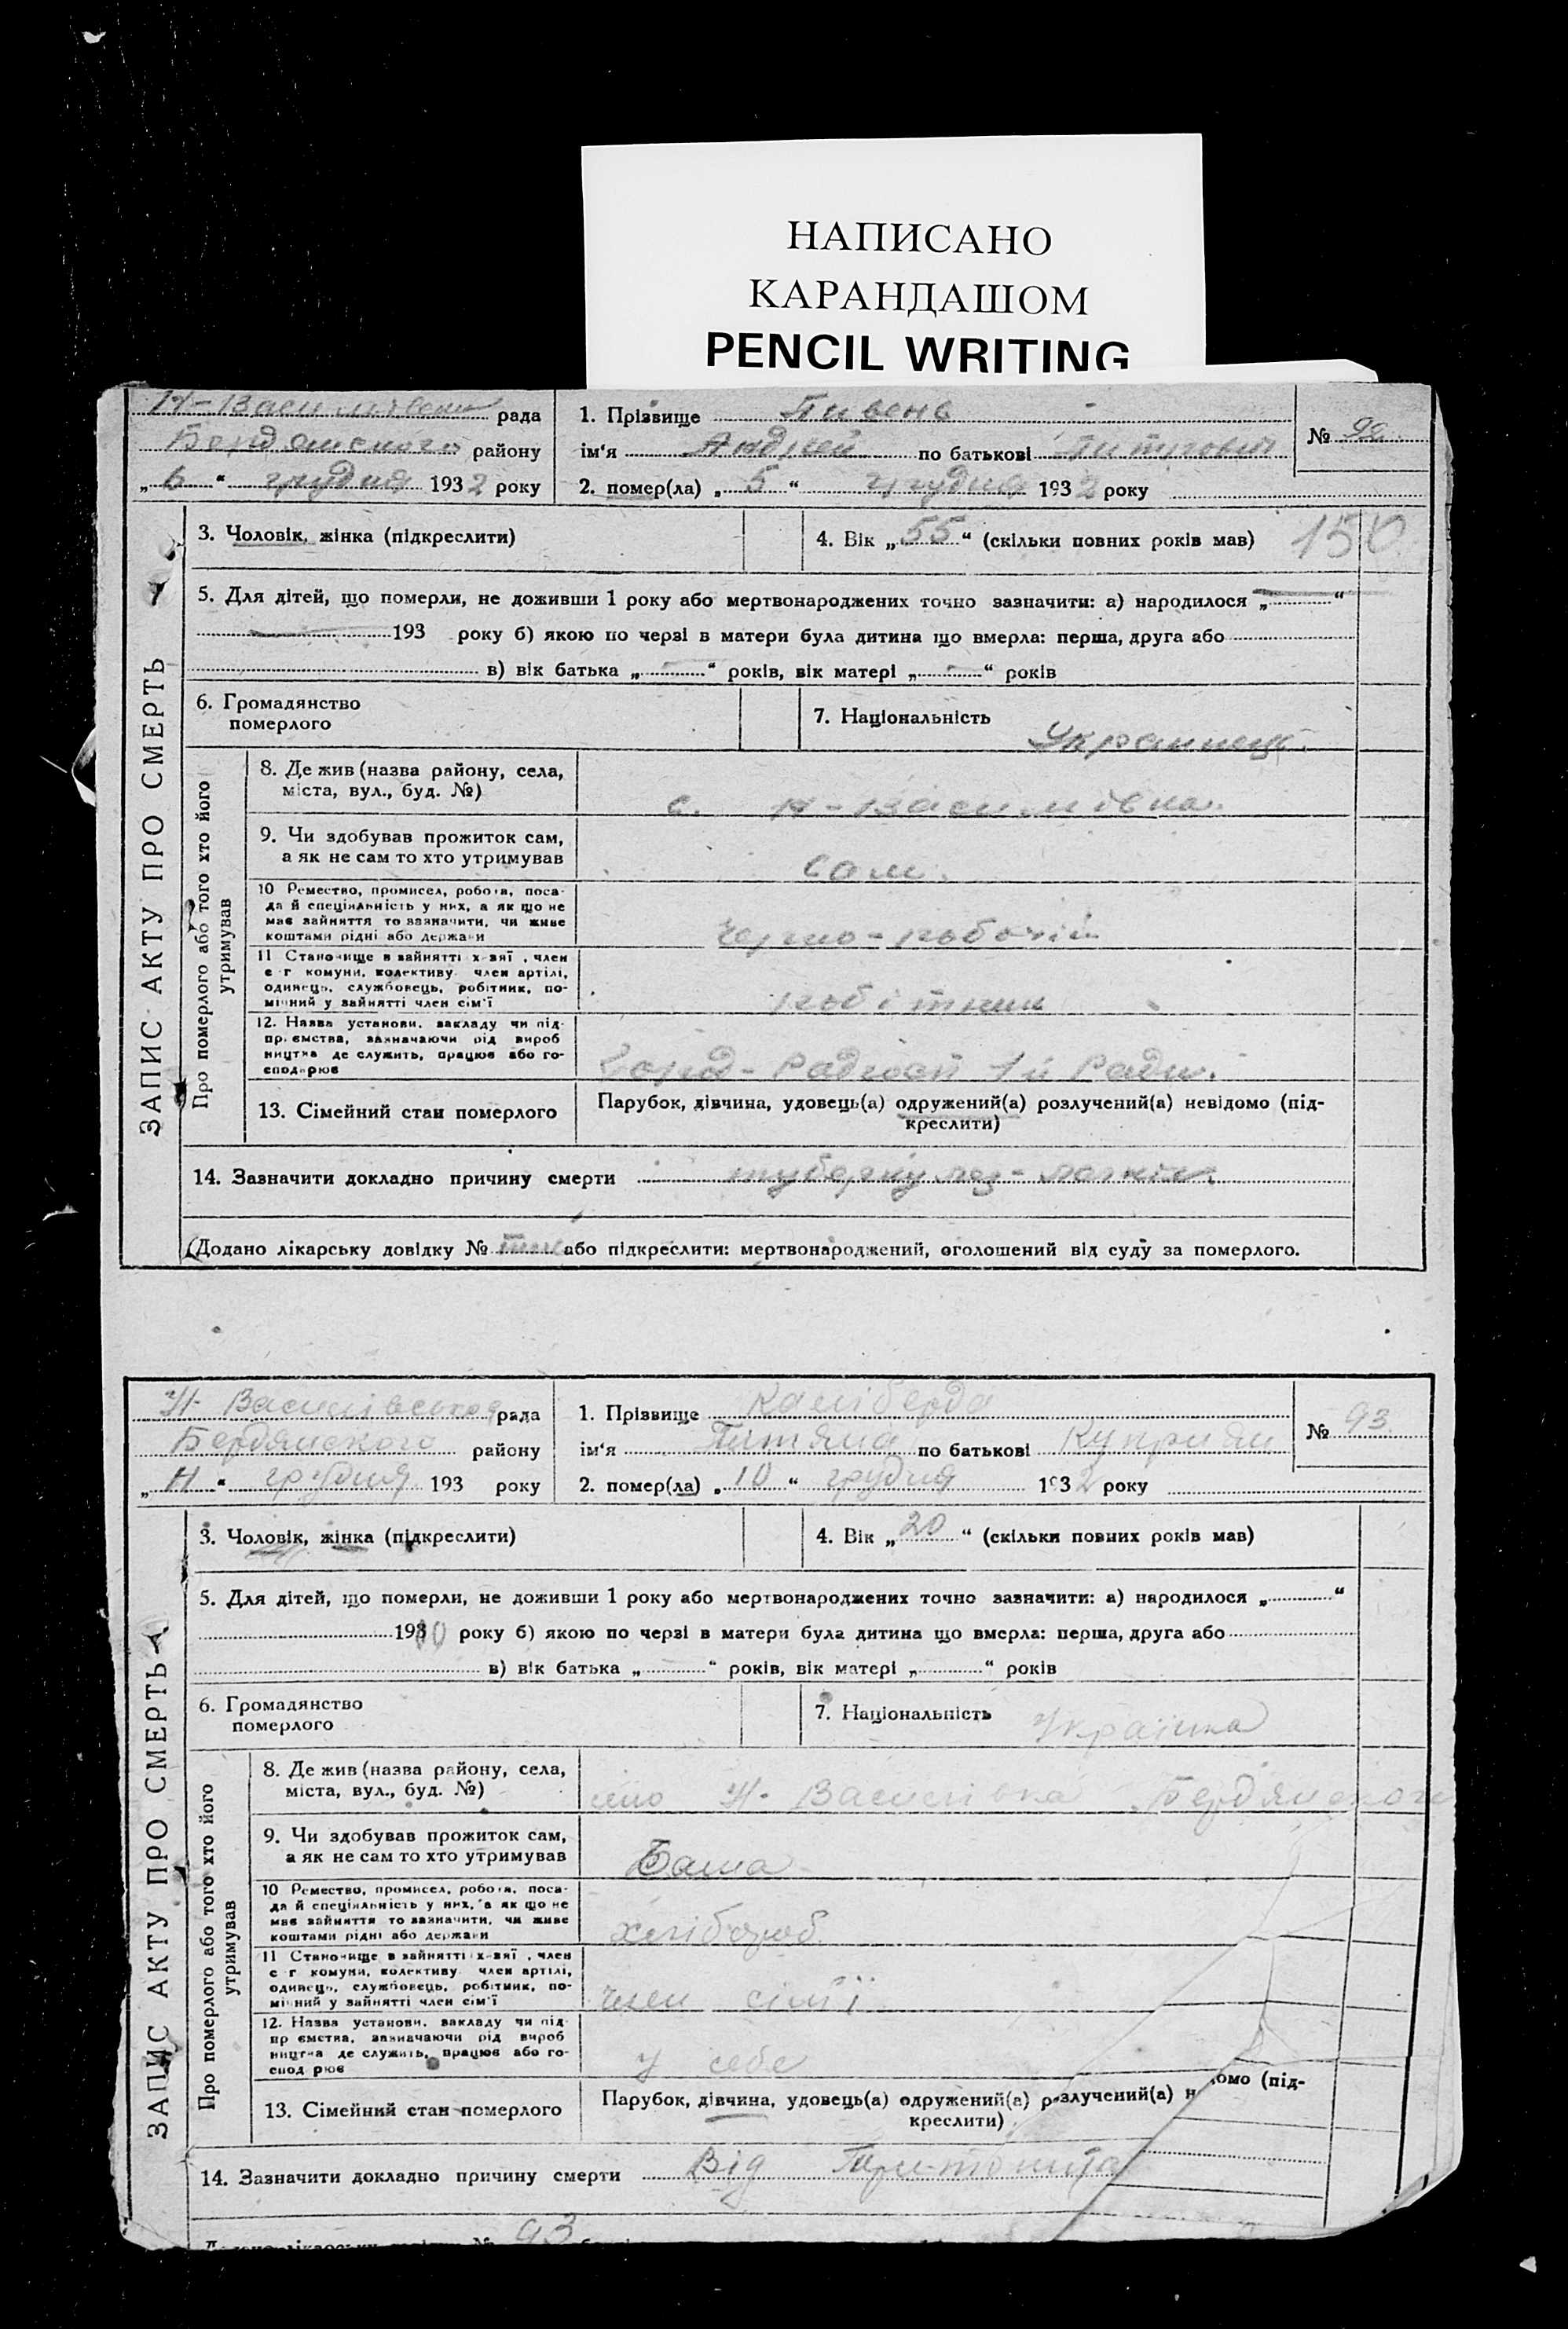 НАПИСАНО
КАРАНДАШОМ
PENCIL WRITING
рада
Бердянського району
„6“ грудня 1932 року
1. Прізвище Пивень
ім'я Андрей по батькові
2. помер(ла) „5“ грудня 1932 року
№ 92
3. Чоловік, жінка (підкреслити)
4. Вік „55“ (скільки повних років мав)
150
5. Для дітей, що померли, не доживши 1 року або мертвонароджених точно зазначити: а) народилося „ “
193 року б) якою по черзі в матери була дитина що вмерла: перша, друга або
в) вік батька „ “ років, вік матері „ “ років
6. Громадянство
померлого
7. Національність Украинець
ЗАПИС АКТУ ПРО СМЕРТЬ
Про померлого або того хто його
утримував
8. Де жив (назва району, села,
міста, вул., буд. №)
с. Н-Василівка
9. Чи здобував прожиток сам,
а як не сам то хто утримував
сам.
10 Ремество, промисел, робота, поса-
да й спеціяльність у них, а як що не
має зайняття то зазначити, чи живе
коштами рідні або держави
Черно-робочій
11 Становище в зайнятті х-зяї , член
с г комуни, колективу член артілі,
одинець, службовець, робітник, по-
мічний у зайнятті член сім'ї
робітник
12. Назва установи, закладу чи під-
пр. ємства, зазначаючи рід вироб
ництва де служить, працює або го-
сподарює
13. Сімейний стан померлого
Парубок, дівчина, удовець(а) одружений(а) розлучений(а) невідомо (під-
креслити)
14. Зазначити докладно причину смерти туберкулез-
(Додано лікарську довідку № або підкреслити: мертвонароджений, оголошений від суду за померлого.
Н- Василівська рада
Бердянського району
„11“ грудня 193 року
1. Прізвище Каліберда
ім'я по батькові Куприян
2. помер(ла) „10“ грудня 1932 року
№ 93.
3. Чоловік, жінка (підкреслити)
4. Вік „20“ (скільки повних років мав)
5. Для дітей, що померли, не доживши 1 року або мертвонароджених точно зазначити: а) народилося „ “
193 року б) якою по черзі в матери була дитина що вмерла: перша, друга або
в) вік батька „ “ років, вік матері „ “ років
6. Громадянство
померлого
7. Національність Українка
ЗАПИС АКТУ ПРО СМЕРТЬ
Про померлого або того хто його
утримував
8. Де жив (назва району, села,
міста, вул., буд. №)
Н- Василівка Бердянського
9. Чи здобував прожиток сам,
а як не сам то хто утримував
10 Ремество, промисел, робота, поса-
да й спеціяльність у них, а як що не
має зайняття то зазначити, чи живе
коштами рідні або держави
хлібороб
11 Становище в зайнятті х-зяї , член
с г комуни, колективу член артілі,
одинець, службовець, робітник, по-
мічний у зайнятті член сім'ї
член сім'ї
12. Назва установи, закладу чи під
пр ємства, зазначаючи рід вироб
ництва де служить, працює або го-
спод рює
у себе
13. Сімейний стан померлого
Парубок, дівчина, удовець(а) одружений(а) розлучений(а) н омо (під-
креслити)
14. Зазначити докладно причину смерти Від
93